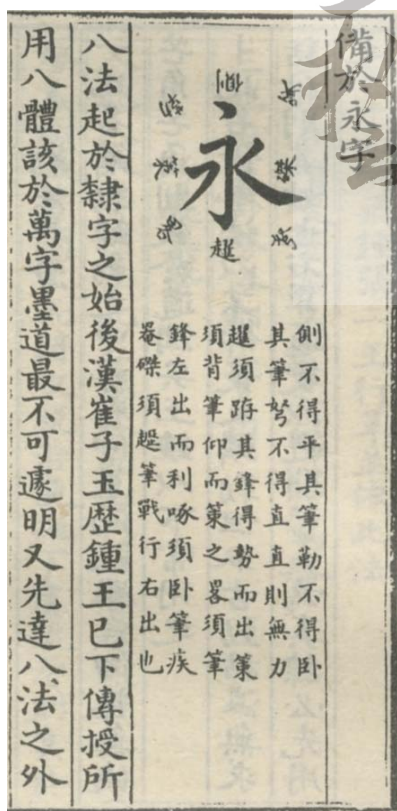 備於永字
側
永
磔
策
趯
側不得平其筆勒不得卧
其筆努不得直直則無力
趯須其鋒得勢而出策
須背筆仰而策之畧須筆
鋒左出而利啄須卧筆疾
罨磔須趯筆戰行右出也
八法起於隸字之始後漢崔子玉歷鍾王已下傳授所
用八體該於萬字墨道最不可遽明又先達八法之外